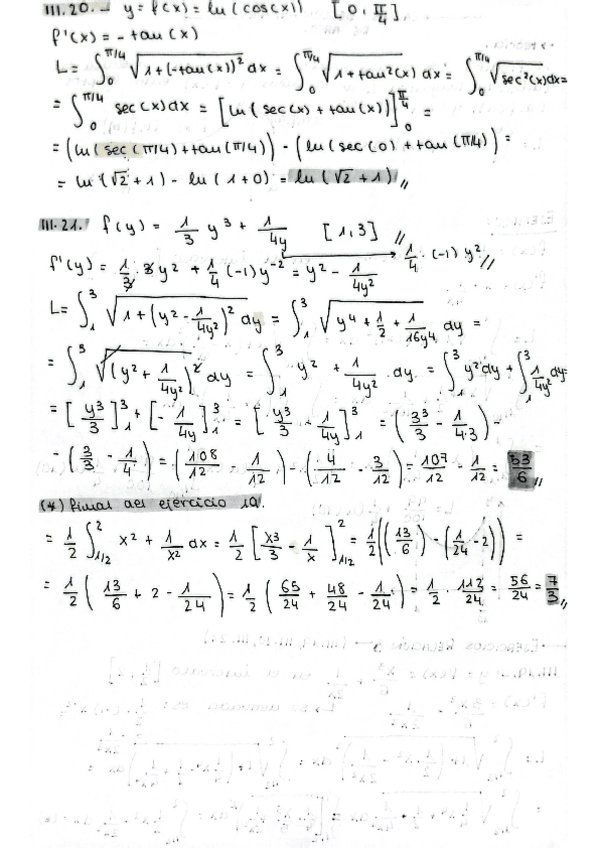 III.20.- y = f(x) = ln(cos(x)) [0, π/4]
f'(x) = -tan(x)
L = ∫₀^{π/4} √(1+(-tan(x))²) dx = ∫₀^{π/4} √(1+tan²(x)) dx = ∫₀^{π/4} √(sec²(x)) dx =
= ∫₀^{π/4} sec(x) dx = [ln(sec(x) + tan(x))]₀^{π/4} =
= (ln(sec(π/4) + tan(π/4)) - (ln(sec(0) + tan(π/4)) =
= ln(√2 + 1) - ln(1+0) = ln(√2 + 1)//
III.21. f(y) = 1/3 y³ + 1/4y [1,3] //
f'(y) = 1/3 · 3y² + 1/4 (-1) y⁻² = y² - 1/4y² → 1/4 · (-1) y²//
L = ∫₁³ √(1+(y² - 1/4y²)²) dy = ∫₁³ √(y⁴ + 1/2 + 1/16y⁴) dy =
= ∫₁³ √((y² + 1/4y²)²) dy = ∫₁³ y² + 1/4y² · dy = ∫₁³ y² dy + ∫₁³ 1/4y² dy =
= [y³/3]₁³ + [-1/4y]₁³ = [y³/3 - 1/4y]₁³ = (3³/3 - 1/4·3) -
- (3/3 - 1/4) = (108/12 - 1/12) - (4/12 - 3/12) = 107/12 - 1/12 = 53/6 //
(*) Final del ejercicio 19.
= 1/2 ∫_{1/2}² x² + 1/x² dx = 1/2 [x³/3 - 1/x]_{1/2}² = 1/2 ((13/6) - (1/24 - 2)) =
= 1/2 (13/6 + 2 - 1/24) = 1/2 (65/24 + 48/24 - 1/24) = 1/2 · 112/24 = 56/24 = 7/3 //